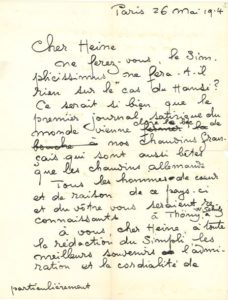 Paris 26 Mai 1914
Cher Heine
ne ferez-vous, le Sim-
plicissimus ne fera-t-il
rien sur le "cas du Hansi?
Ce serait si bien que le
premier journal satirique du
monde vienne clore le bec
fermer la
bouche à nos chauvins fran-
çais qui sont aussi bêtes
que les chauvins allemands
Tous les hommes de cœur
et de raison de ce pays-ci
et du vôtre vous seraient
reconnaissants à Thöny
à vous, cher Heine, à toute
la rédaction du Simpli les
meilleurs souvenirs l'admi-
ration et la cordialité de
particulièrement